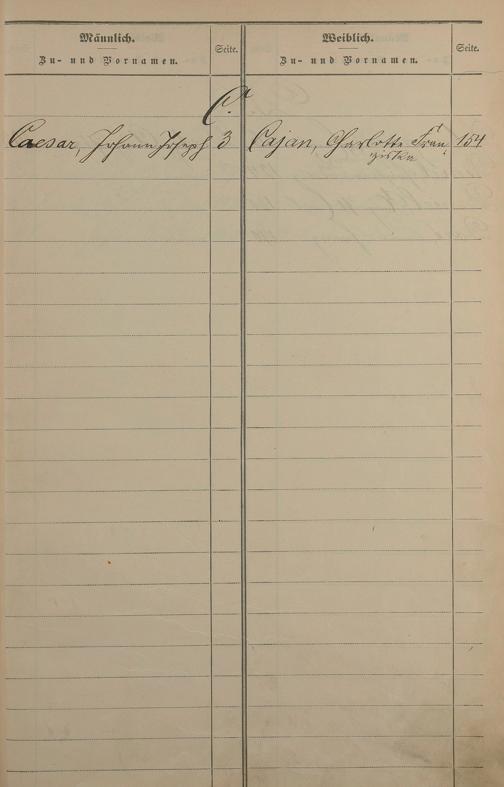 Männlich.
Zu- und Vornamen.
Seite.
Weiblich.
Zu- und Vornamen.
Seite.
C.
Caesar, Johann Joseph 3
Cajan, Charlotte Fran 154
ziska